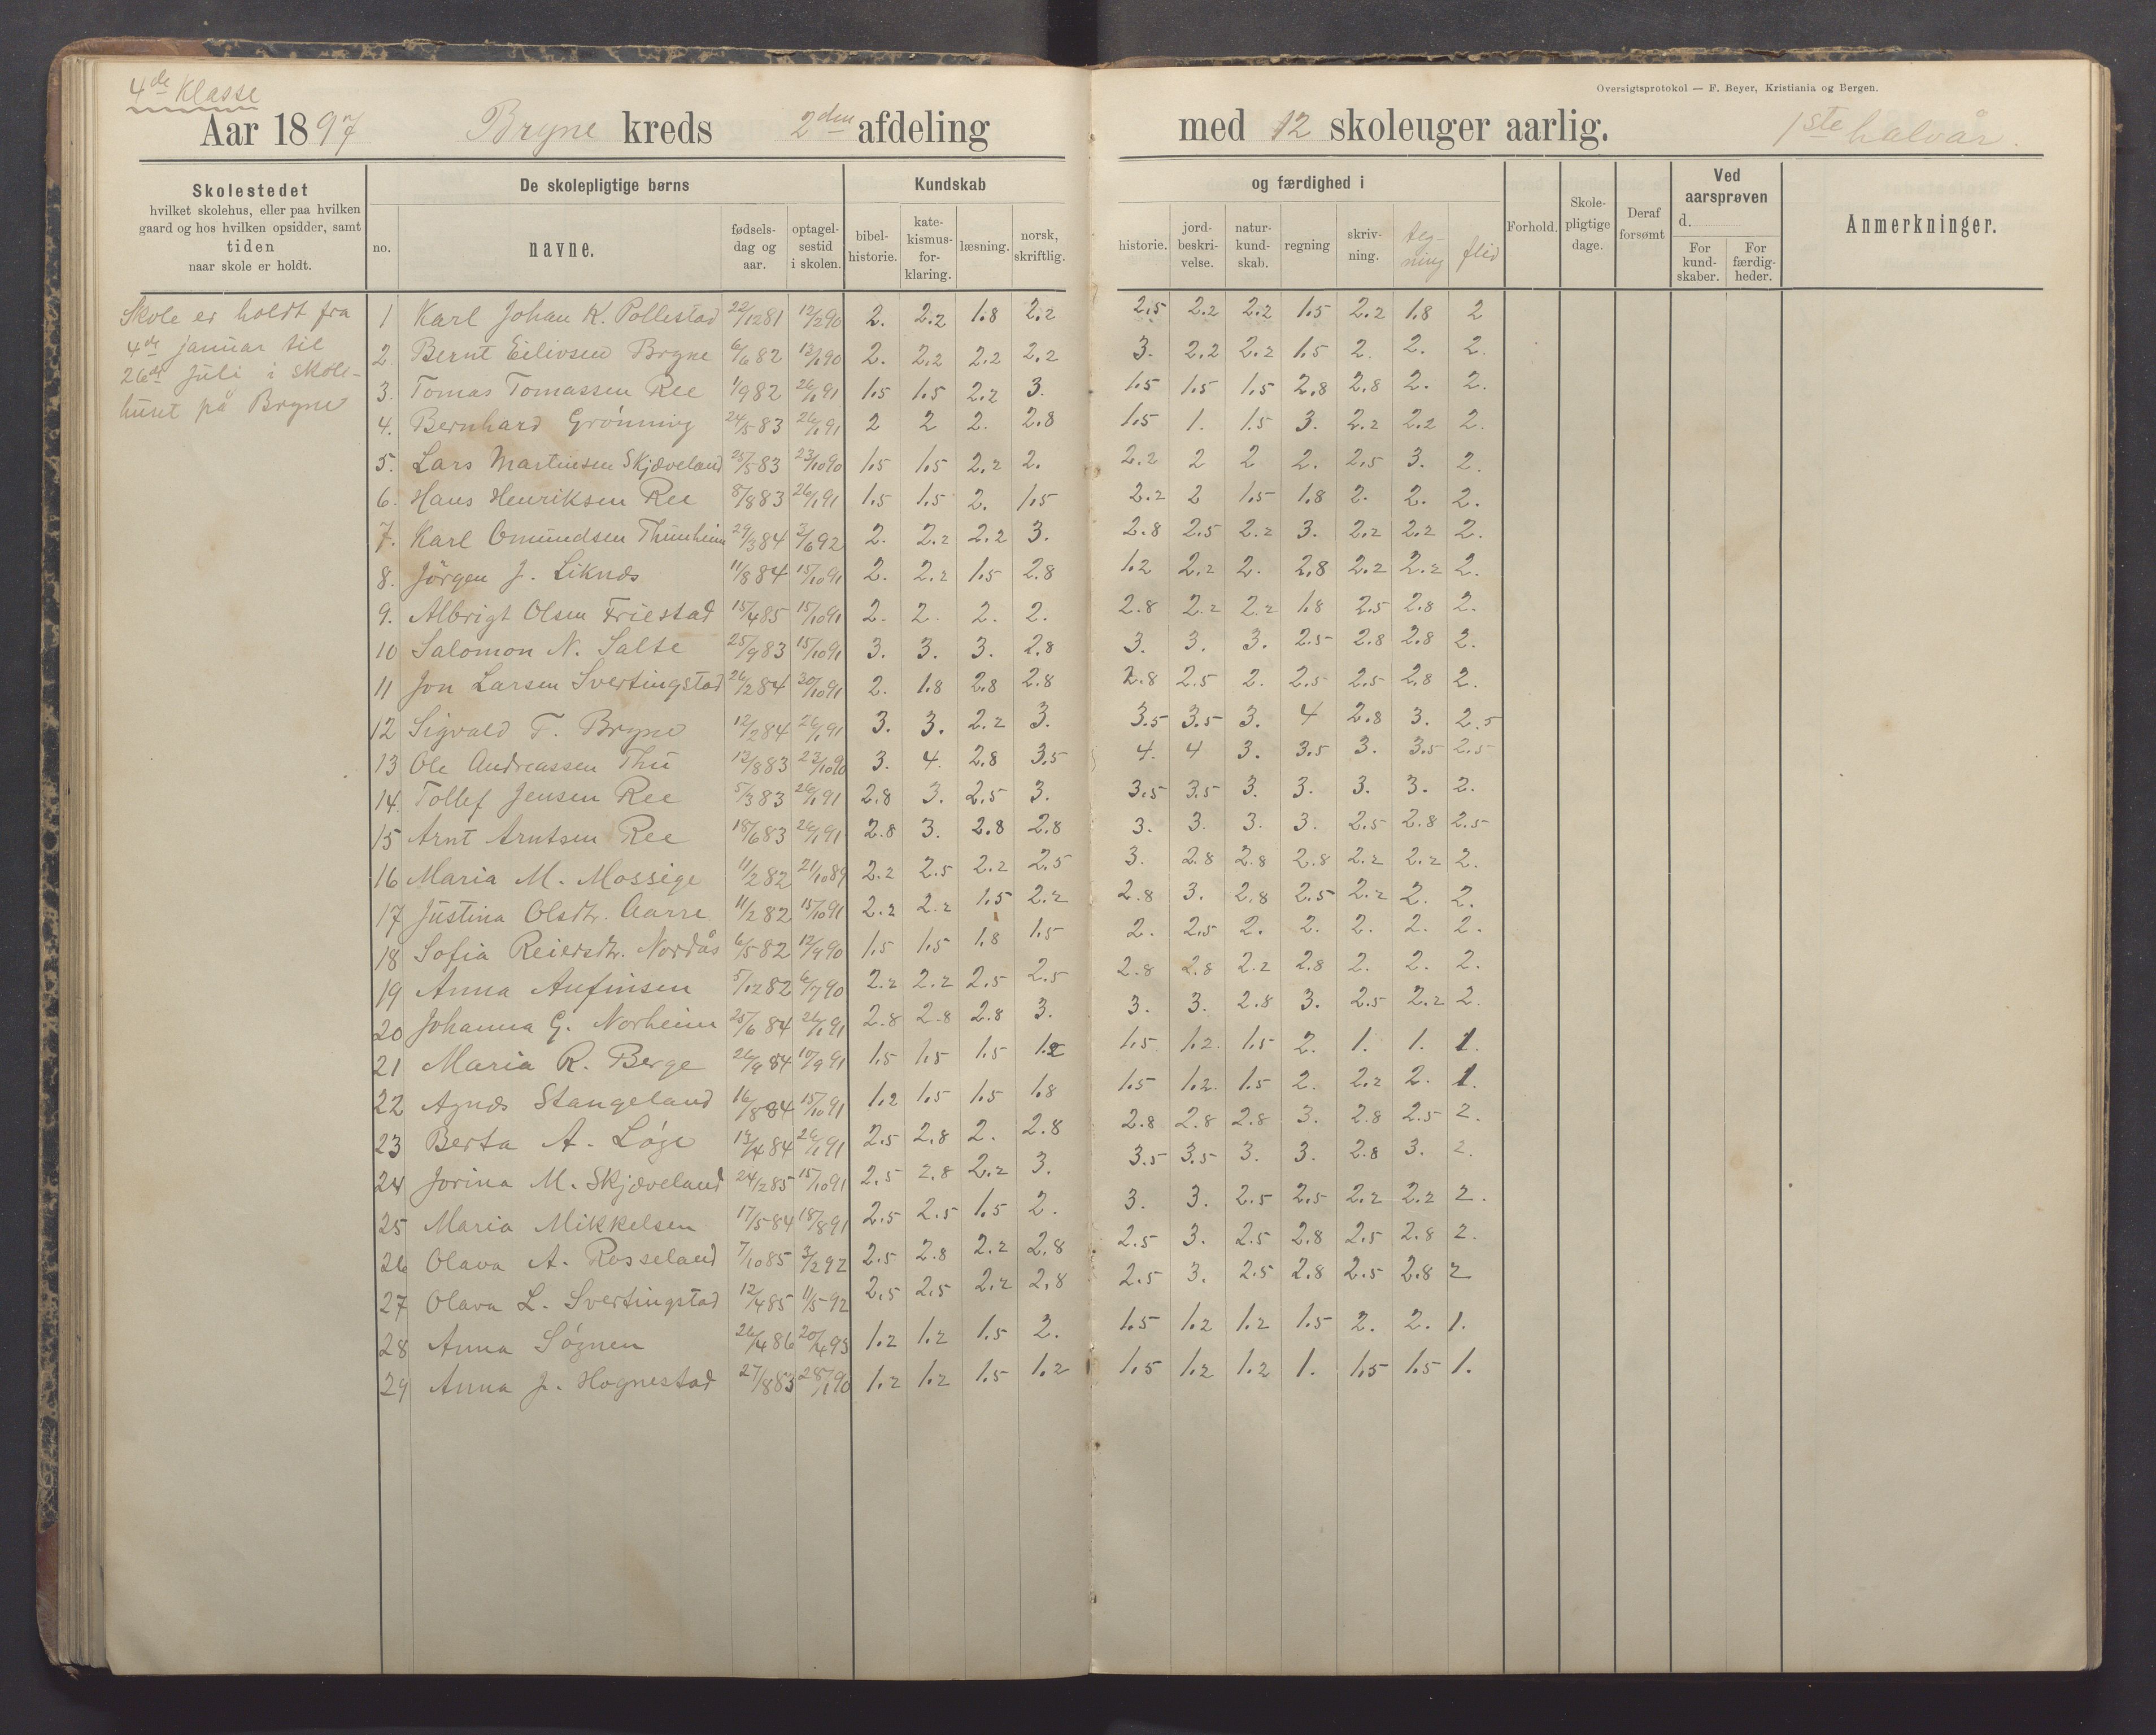 4de Klasse
Oversigtsprotokol — F. Beyer, Kristiania og Bergen.
Aar 1897 Bryne kreds 2den afdeling med 12 skoleuger aarlig. 1ste halvår.
Skolestedet
hvilket skolehus, eller paa hvilken
gaard og hos hvilken opsidder, samt
tiden
naar skole er holdt.
De skolepligtige børns
no. navne. fødsels-dag og aar. optagel-sestid i skolen.
Kundskab og færdighed i
bibel-historie. kate-kismus-for-klaring. læsning. norsk, skriftlig. historie. jord-beskri-velse. natur-kund-skab. regning skriv-ning. teg-ning flid
Forhold. Skole-pligtige dage. Deraf forsømt
Ved aarsprøven d.
For kund-skaber. For færdig-heder.
Anmerkninger.
Skole er holdt fra
4de januar til
26de juli i skole-
huset på Bryne
1 Karl Johan K. Pollestad 22/12 81 12/2 90 2. 2.2 1.8 2.2 2.5 2.2 2.2 1.5 2.2 1.8 2
2. Bernt Eilivsen Bryne 6/6 82 12/1 90 2. 2.2 2.2 2.2 3. 2.2 2.2 1.5 2. 2. 2.
3. Tomas Tomassen Ree 1/9 82 26/1 91 1.5 1.5 2.2 3. 1.5 1.5 1.5 2.8 2.8 2. 2.
4. Bernhard Grönning 24/5 83 26/1 91 2 2 2. 2.8 1.5 1. 1.5 3. 2.2 2.2 2.
5. Lars Martinsen Skjæveland 25/5 83 23/10 90 1.5 1.5 2.2 2. 2.2 2 2 2. 2.5 3. 2.
6. Hans Henriksen Ree 8/8 83 26/1 91 1.5 1.5 2. 1.5 2.2 2 1.5 1.8 2. 2. 2.
7. Karl Omundsen Thunheim 29/3 84 3/6 92 2. 2.2 2.2 3. 2.8 2.5 2.2 3. 2.2 2.2 2.
8. Jörgen J. Liknæs 11/8 84 15/10 91 2. 2.2 1.5 2.8 1.2 2.2 2. 2.8 2.2 2.2 2.
9. Albrigt Olsen Friestad 15/4 85 15/10 91 2. 2. 2. 2. 2.8 2.2 2.2 1.8 2.5 2.8 2.
10 Salomon N. Salte 25/9 83 15/10 91 3. 3. 3. 2.8 3. 3. 3. 2.5 2.8 2.8 2.
11 Jon Larsen Svertingstad 26/2 84 30/10 91 2. 1.8 2.8 2.8 2.8 2.5 2. 2.5 2.5 2.8 2.
12 Sigvald T. Bryne 12/2 84 26/1 91 3. 3. 2.2 3. 3.5 3.5 3. 4 2.8 3. 2.5
13 Ole Andreassen Thu 13/8 83 23/10 90 3. 4. 2.8 3.5 4. 4 3. 3.5 3. 3.5 2.5
14. Tollef Jensen Ree 5/3 83 26/1 91 2.8 3. 2.5 3. 3.5 3.5 3. 3. 3. 3. 2.
15 Arnt Arntsen Ree 18/6 83 26/1 91 2.8 3. 2.8 2.8 3. 3. 3. 3. 2.5 2.8 2.5
16 Maria M. Mossige 11/2 82 21/10 89 2.2 2.5 2.2 2.5 3. 2.8 2.8 2.8 2.2 2.2 2.
17 Justina Olsdtr. Aarre 11/2 82 15/10 91 2.2 2.2 1.5 2.2 2.8 3. 2.8 2.5 2.2 2. 2.
18 Sofia Reiersdtr. Nordås 6/5 82 12/9 90 1.5 1.5 1.8 1.5 2. 2.5 2. 2. 2. 2. 2.
19 Anna Aufinsen 5/12 82 6/7 90 2.2 2.2 2.5 2.5 2.8 2.8 2.2 2.8 2. 2. 2.
20 Johanna G. Norheim 25/6 84 26/1 91 2.8 2.8 2.8 3. 3. 3. 2.8 3. 2.5 2.2 2.
21 Maria R. Berge 26/9 84 10/9 91 1.5 1.5 1.5 1.2 1.5 1.2. 1.5 2. 1. 1. 1.
22 Agnæs Stangeland 16/8 84 15/10 91 1.2 1.5 1.5 1.8 1.5 1.2. 1.5 2. 2.2 2. 1.
23 Berta A. Løge 19/4 84 26/1 91 2.5 2.8 2. 2.8 2.8 2.8 2.8 3. 2.8 2.5 2.
24 Jorina M. Skjæveland 24/2 85 15/10 91 2.5 2.8 2.2 3. 3.5 3.5 3. 3. 2.8 3. 2.
25 Maria Mikkelsen 17/5 84 18/8 91 2.5 2.5 1.5 2. 3. 3. 2.5 2.5 2.2 2.2 2.
26 Olava A. Rosseland 7/10 85 3/2 92 2.5 2.8 2.2 2.8 2.5 3. 2.5 2.8 2.5 2.8 2.
27 Olava L. Svertingstad 12/4 85 11/5 92 2.5 2.5 2.2 2.8 2.5 3. 2.5 2.8 2.5 2.8 2
28 Anna Søgnen 26/4 86 20/4 93 1.2 1.2 1.5 2. 1.5 1.2 1.2 1.5 2. 2. 1.
29 Anna J. Hognestad 27/8 83 28/1 90 1.2 1.2 1.5 1.2 1.5 1.2 1.2 1. 1.5 1.5 1.